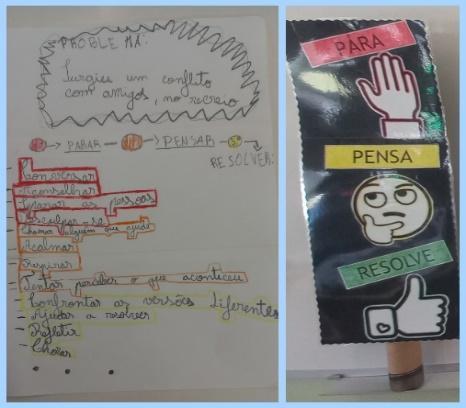 PROBLEMA:
Surgiu um conflito
com amigos, no recreio
→ PARAR → PENSAR →
RESOLVER:
Conversar
Aconselhar
Separar as pessoas
Desculpar-se
Chamar alguém que ajude
Acalmar
Respirar
Tentar perceber o que aconteceu
Confrontar as versões diferentes
Ajudar a resolver
Refletir
Chorar
PÁRA
PENSA
RESOLVE